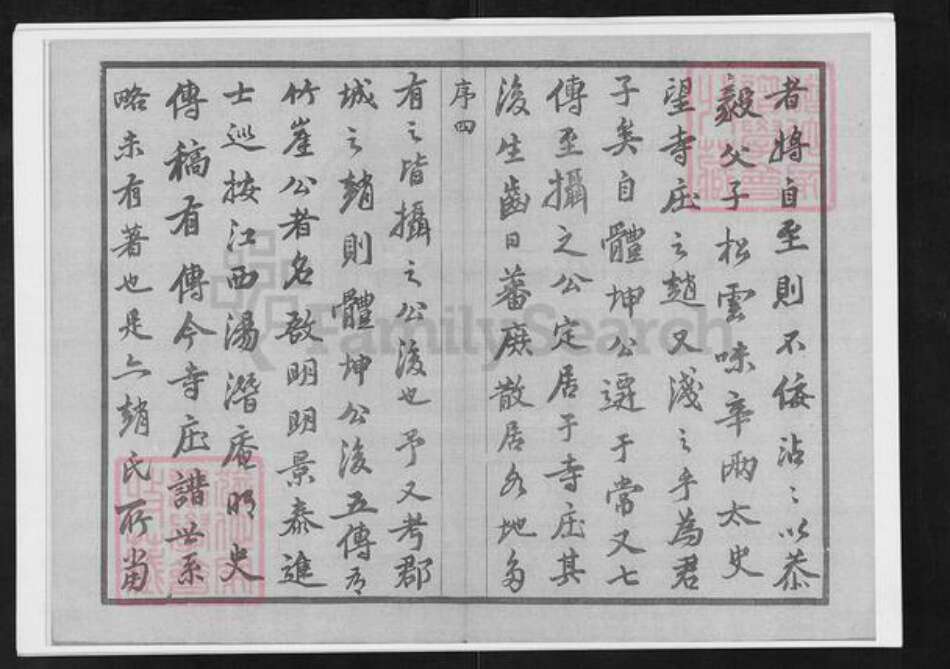 者將自至則不佞沾〻以恭
毅父子松雲味辛兩太史
望寺庄之趙又淺之乎為君
子矣自體坤公遷于常又七
傳至攝之公定居于寺庄其
後生齒日蕃庶散居各地多
序四
有之皆攝之公後也予又考郡
城之趙則體坤公後五傳有
竹崖公者名啟明明景泰進
士巡按江西湯潛庵明史
傳稿有傳今寺庄譜世系
略未有著也是亦趙氏所當
FamilySearch